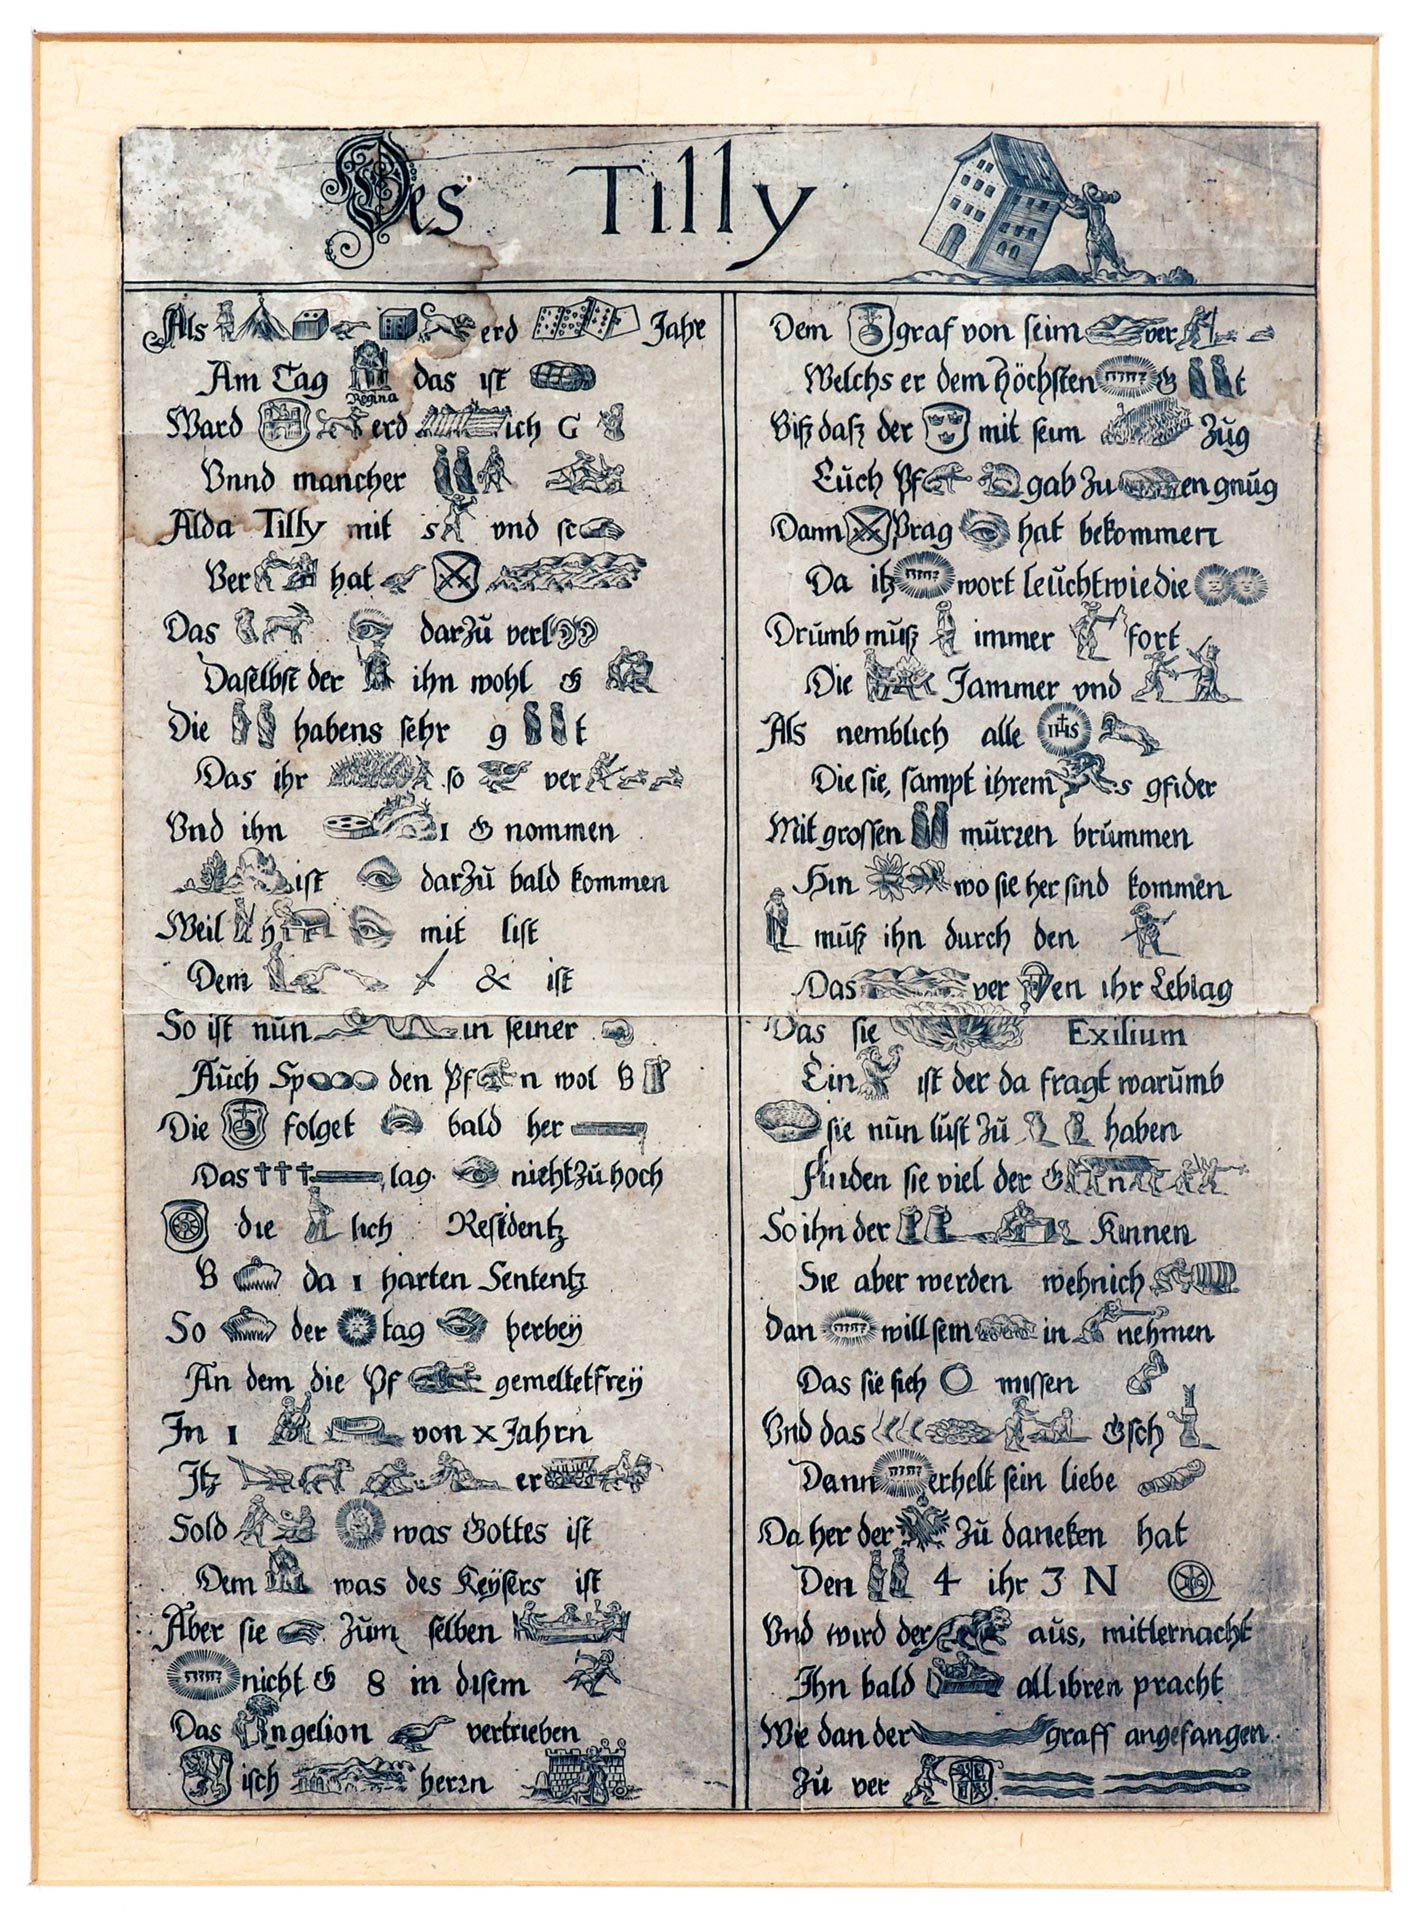 Des Tilly
Als erd Jahr
Am Tag Regina das ist
Ward erd ich G
Vnnd mancher
Alda Tilly mit s vnd se
Ver hat
Das darzů verl
Daselbst der ihn wohl G
Die habens sehr g t
Das ihr so ver
Vnd ihn 1 G nommen
ist darzů bald kommen
Weil h mit list
Dem & ist
So ist nůn in seiner
Aůch Sp den Pf n wol B
Die folget bald her
Das lag nicht zů hoch
die lich Residentz
B da 1 harten Sententz
So der tag herbeÿ
An dem die Pf gemeltet freÿ
In 1 von x Jahrn
Itz er
Sold was Gottes ist
Dem was des Keÿsers ist
Aber sie zům selben
יהוה nicht G 8 in disem
Das ngelion vertrieben
isch herrn
Dem graf von seim ver
Welchs er dem höchsten יהוה G t
Biß daß der mit seim Zůg
Eůch Pf gab zů en gnůg
Dann Prag hat bekommen
Da itz יהוה wort leůcht wie die
Drůmb můß immer fort
Die Jammer vnd
Als nemblich alle IHS
Die sie, sampt ihrem s gfider
Mit grossen můrren brůmmen
Hin wo sie her sind kommen
můß ihn důrch den
Das ver en ihr Lebtag
Das sie Exilium
Ein ist der da fragt warůmb
sie nůn lůst zů haben
Finden sie viel der G n
So ihn der Kinnen
Sie aber werden wehnich
Dan יהוה will sein in nehmen
Das sie sich missen
Vnd das Gsch
Dann יהוה erhelt sein liebe
Da her der zů dancken hat
Den 4 ihr 3 N
Vnd wird der aůs, mitternacht
Ihn bald all ihren pracht
Wie dan der graff angefangen
Zů ver